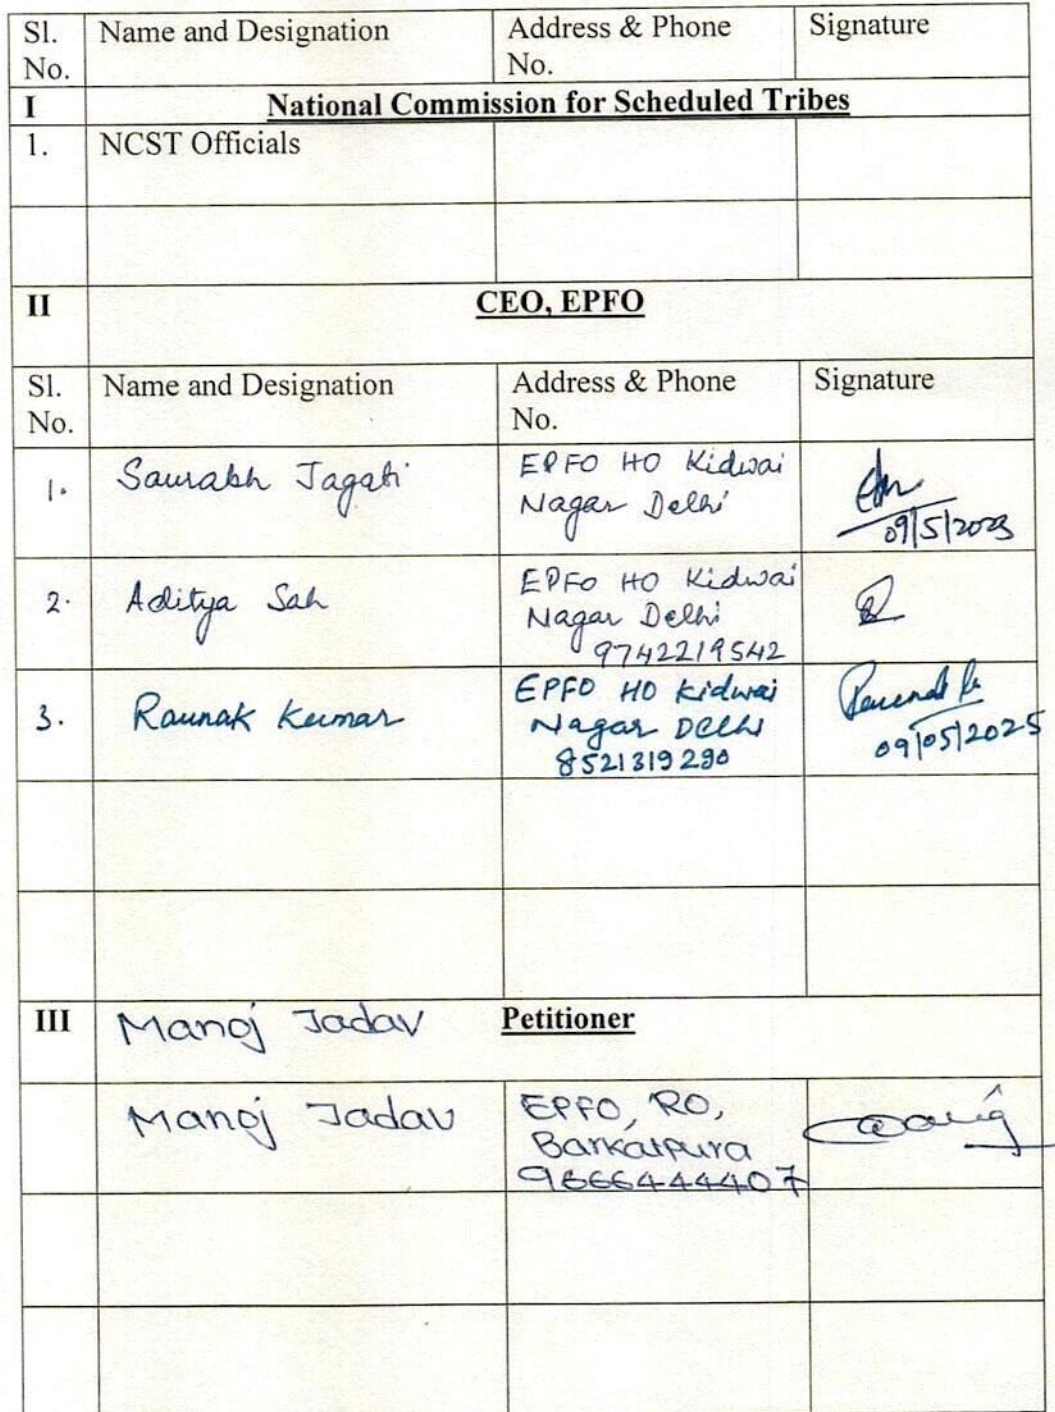 Sl. Name and Designation Address & Phone Signature
No. No.
I National Commission for Scheduled Tribes
1. NCST Officials
II CEO, EPFO
Sl. Name and Designation Address & Phone Signature
No. No.
1. Saurabh Jagati EPFO HO Kidwai
Nagar Delhi
09/5/2025
2. Aditya Sah EPFO HO Kidwai
Nagar Delhi
9742219542
3. Raunak Kumar EPFO HO Kidwai
Nagar Delhi
8521319290
09/05/2025
III Manoj Jadav Petitioner
Manoj Jadav EPFO, RO,
Barkatpura
9666444407